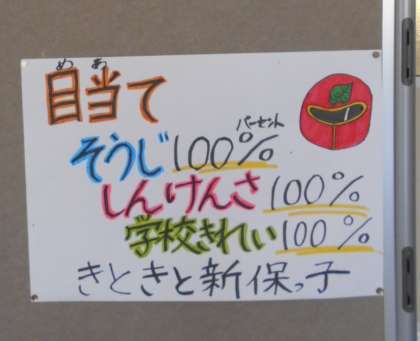 めあ
目当て
パーセント
そうじ100%
しんけんさ100%
学校きれい100%
きときと新保っ子